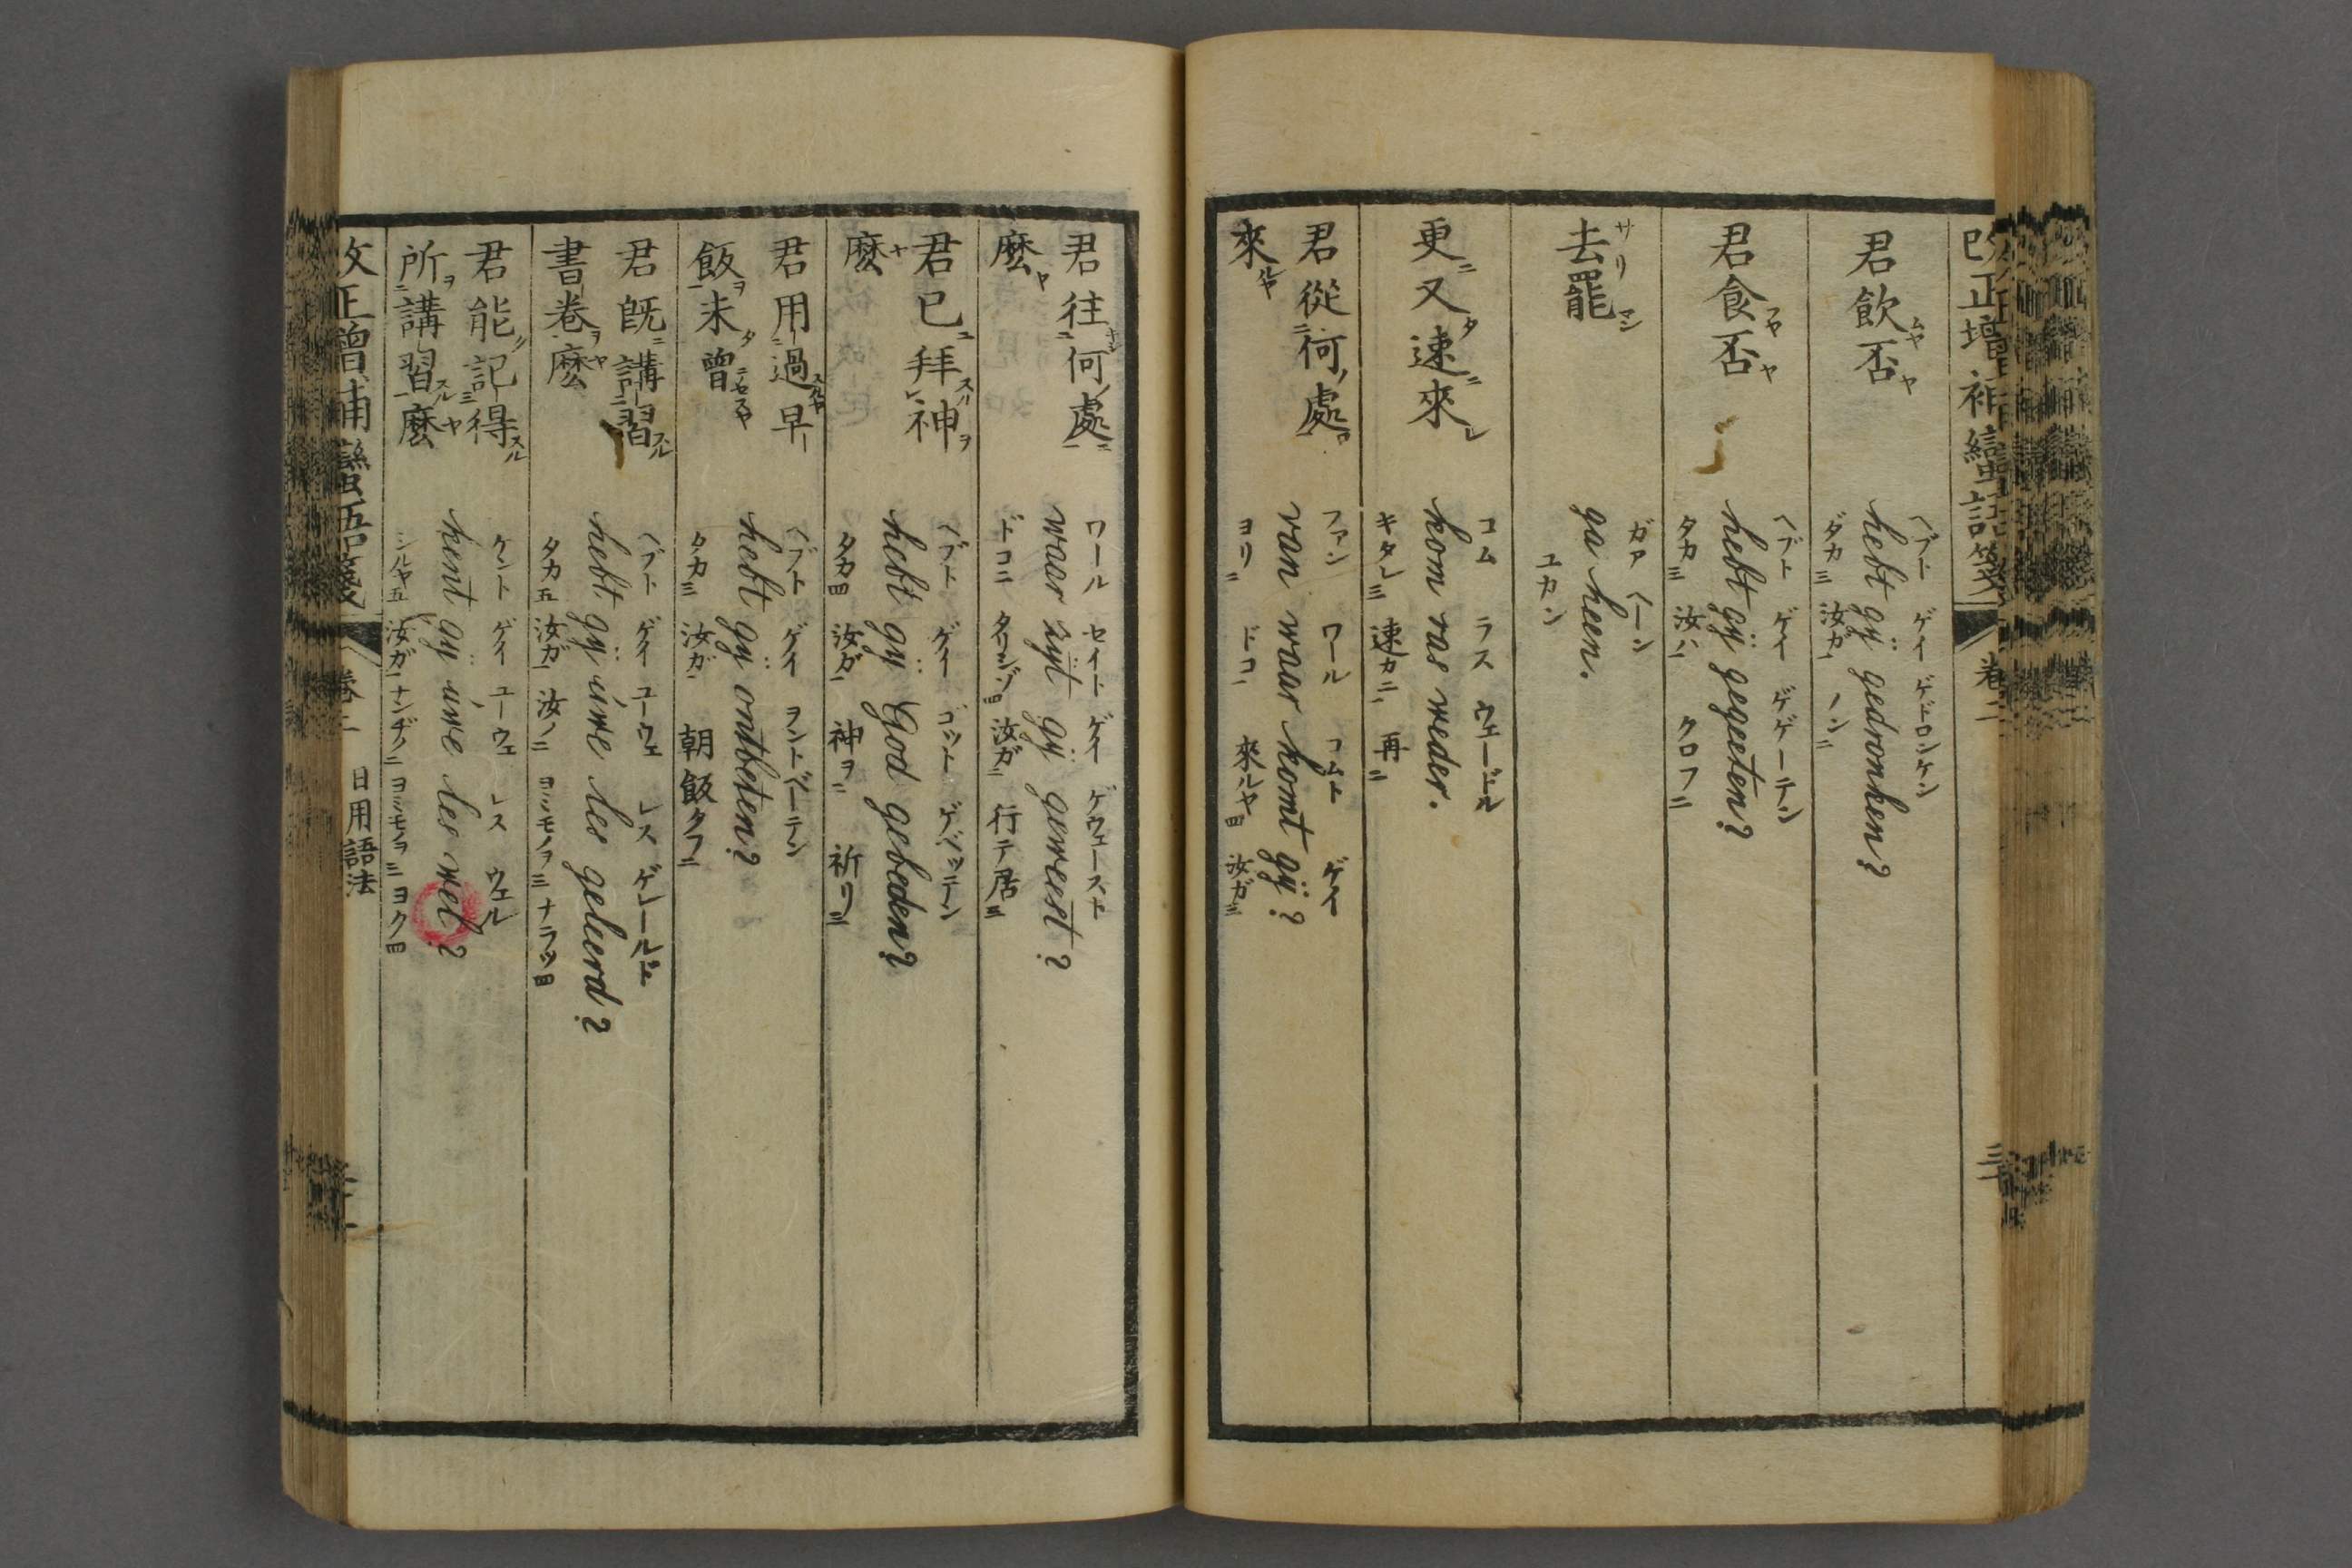 改正增補蠻語箋
卷二
君飲ムヤ否ヤ
ヘブト ゲイ ゲドロンケン
hebt gÿ gedronken?
ダカ三 汝ガ一 ノン二
君食フヤ否ヤ
ヘブト ゲイ ゲゲーテン
hebt gÿ gegeeten?
タカ三 汝ハ一 クロフ二
去サリ罷マシ
ガア ヘーン
ga heen.
ユカン
更ニ又タ速ニ來レ
コム ラス ウェードル
kom ras weder.
キタレ三 速カニ一 再二
君從何ノ處
來ルヤ
ファン ワール コムト ゲイ
van waar komt gÿ?
ヨリ二 ドコ一 來ルヤ四 汝ガ三
君往何ノ處ニ
麼ヤ
ワール セイト ゲイ ゲウェースト
waar zyt gÿ geweest?
ドコニ一 タリシゾ四 汝ガ二 行テ居三
君已ニ拜スリ神ヲ
麼ヤ
ヘブト ゲイ ゴット ゲベッテン
hebt gÿ God gebeden?
タカ四 汝ガ一 神ヲ二 祈リ三
君用過スルヤ早
飯ヲ未タ曾ニセスヤ
ヘブト ゲイ ヲントベーテン
hebt gÿ ontbeten?
タカ三 汝ガ一 朝飯タフ二
君既ニ講習スル
書卷ヲ麼ヤ
ヘブト ゲイ ユーウェ レス ゲレールド
hebt gÿ úwe les geleerd?
タカ五 汝ガ一 汝ノ二 ヨミモノヲ三 ナラツ四
君能ク記得スル
所ヲ講習スル麼ヤ
ケント ゲイ ユーウェ レス ウェル
kent gÿ úwe les wel?
シルヤ五 汝ガ一 ナンヂノ二 ヨミモノヲ三 ヨク四
改正增補蠻語箋
卷二
日用語法